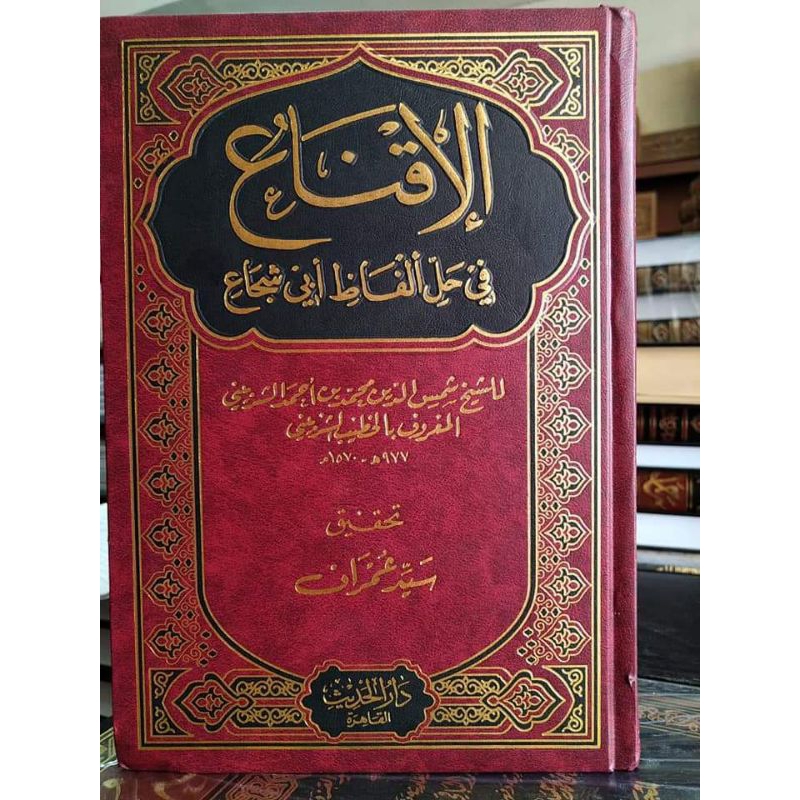 الإقناع
في حل ألفاظ أبي شجاع
للشيخ شمس الدين محمد بن أحمد الشربيني
المعروف بالخطيب الشربيني
٩٧٧هـ - ١٥٧٠م
تحقيق
سيد عمران
دار الحديث
القاهرة